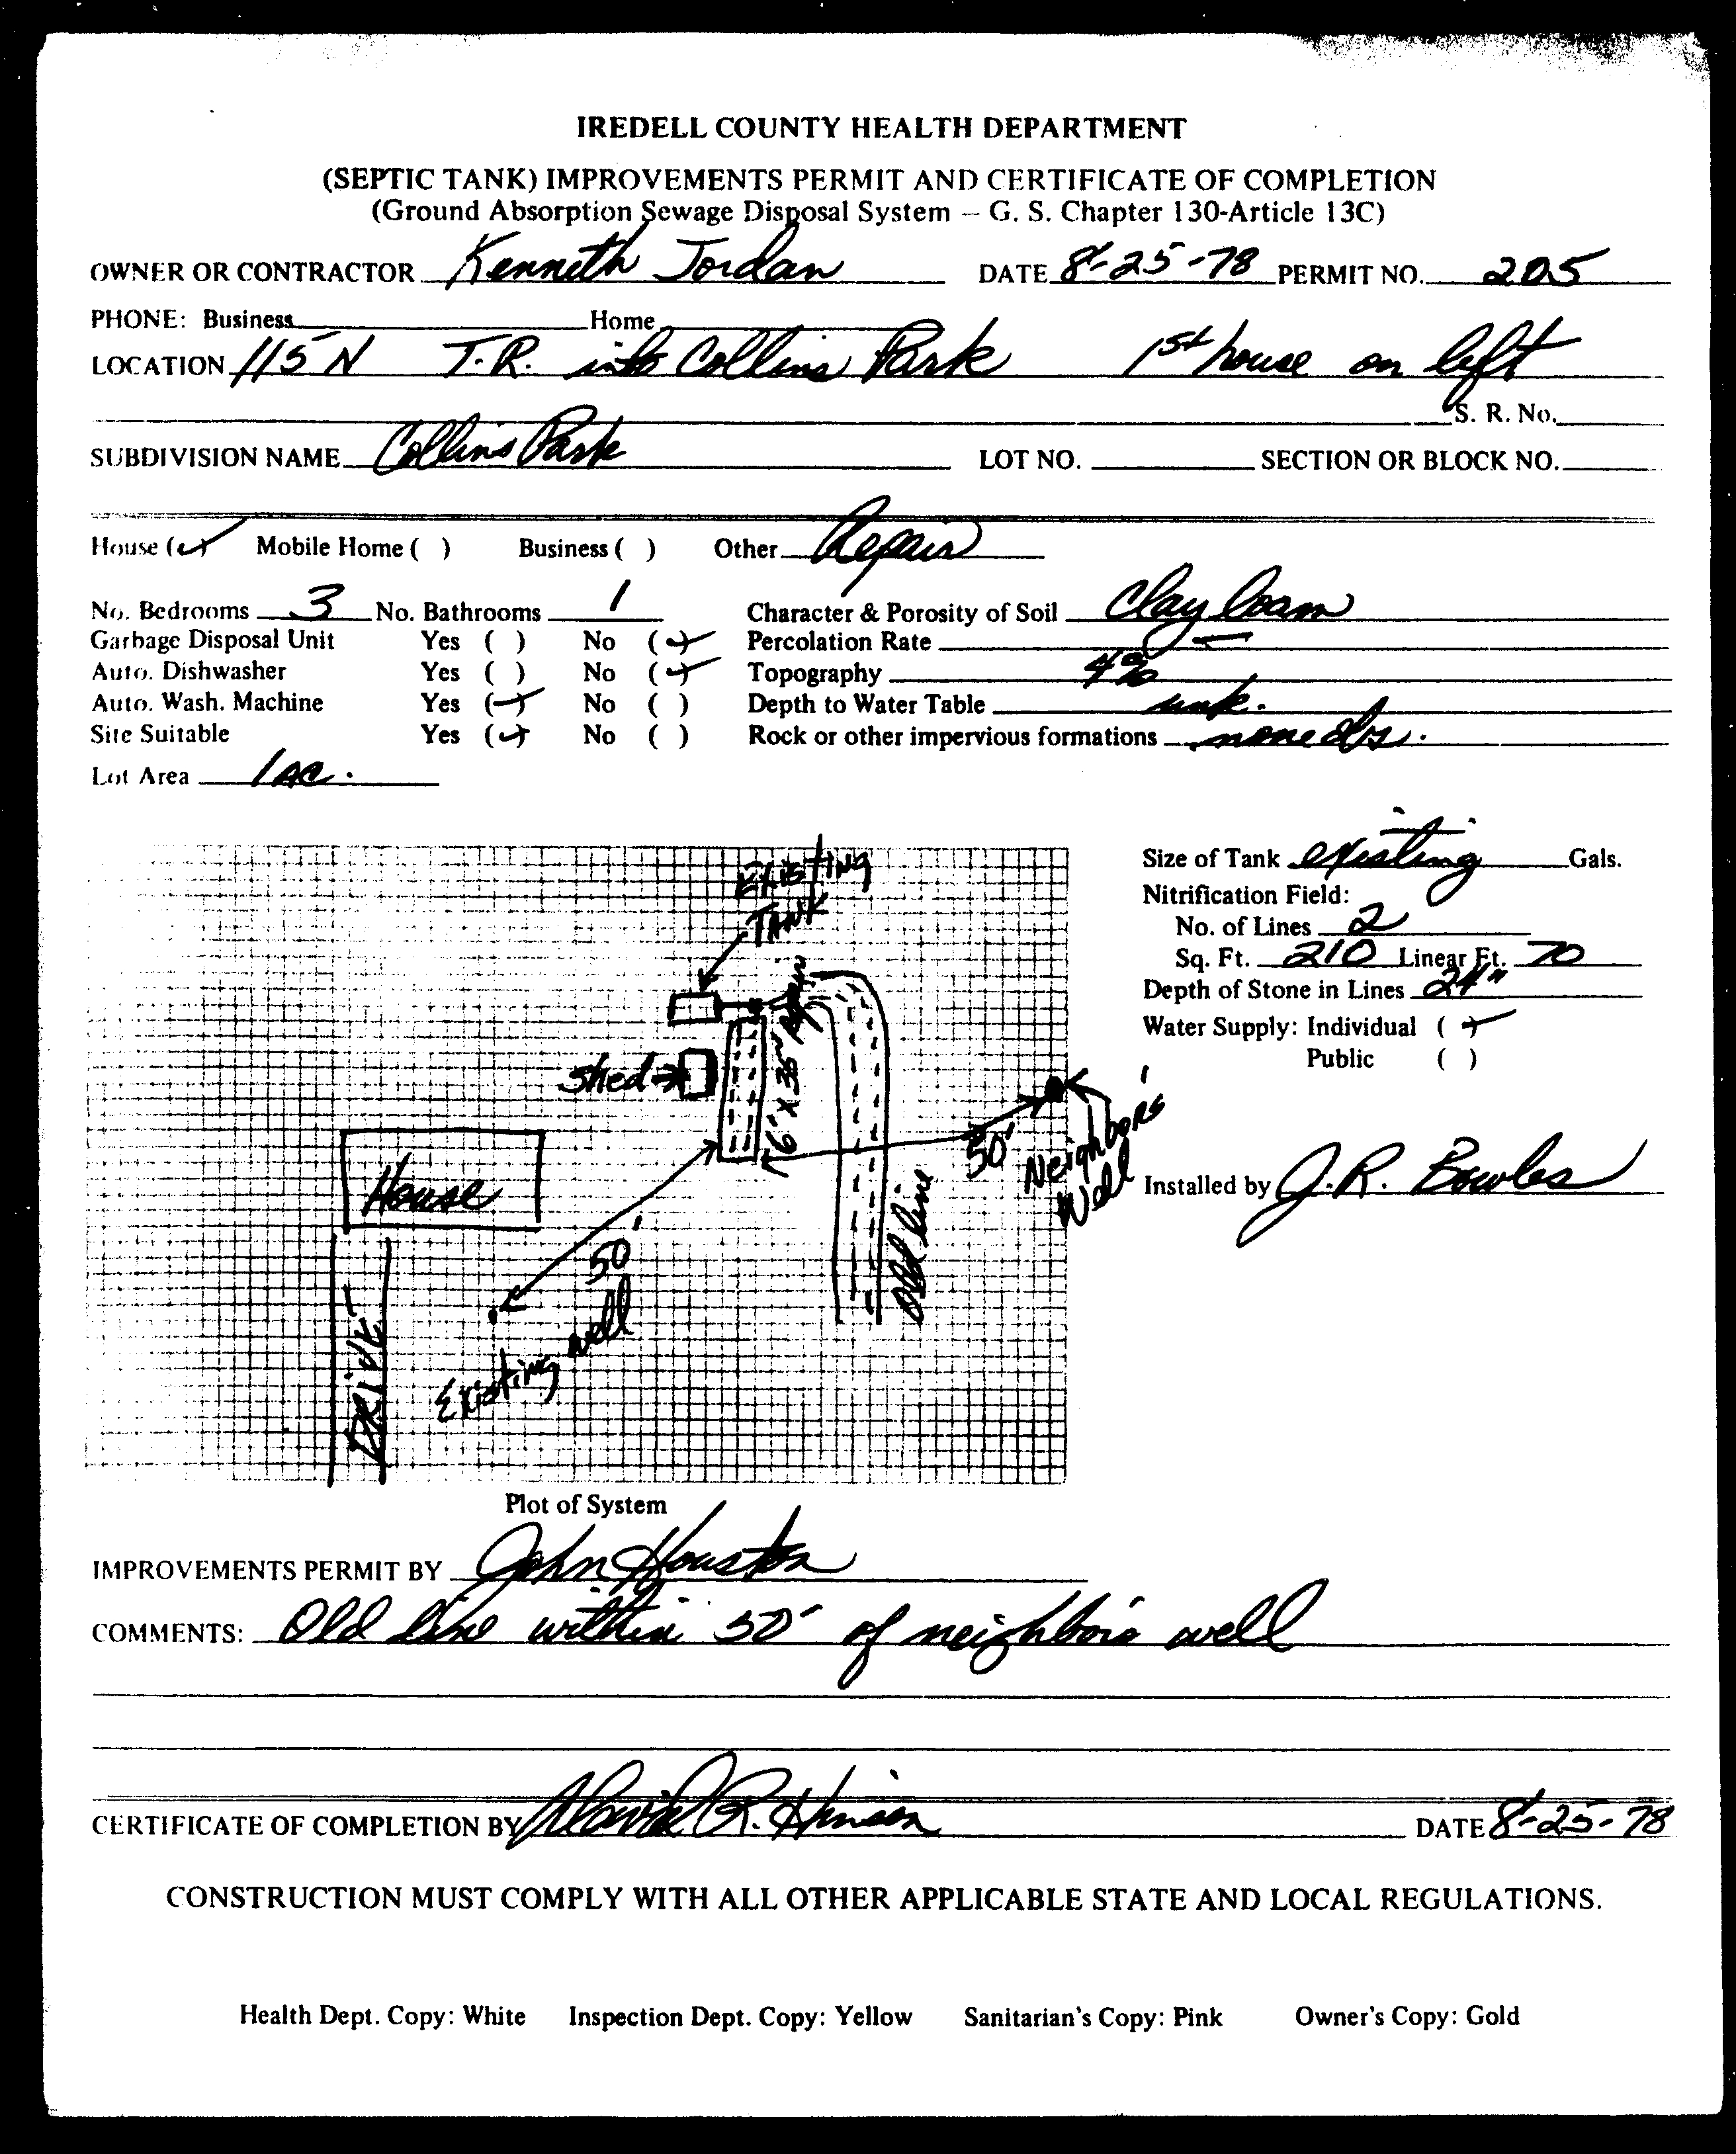 IREDELL COUNTY HEALTH DEPARTMENT
(SEPTIC TANK) IMPROVEMENTS PERMIT AND CERTIFICATE OF COMPLETION
(Ground Absorption Sewage Disposal System — G. S. Chapter 130-Article 13C)
OWNER OR CONTRACTOR Kenneth Jordan DATE 8-25-78 PERMIT NO. 205
PHONE: Business Home
LOCATION 115 N T.R. into Collins Park 1st house on left
S. R. No.
SUBDIVISION NAME Collins Park LOT NO. SECTION OR BLOCK NO.
House (✓) Mobile Home ( ) Business ( ) Other Repair
No. Bedrooms 3 No. Bathrooms 1 Character & Porosity of Soil Clay loam
Garbage Disposal Unit Yes ( ) No (✓) Percolation Rate —
Auto. Dishwasher Yes ( ) No (✓) Topography 4%
Auto. Wash. Machine Yes (✓) No ( ) Depth to Water Table unk.
Site Suitable Yes (✓) No ( ) Rock or other impervious formations none obs.
Lot Area 1 ac.
Size of Tank existing Gals.
Nitrification Field:
No. of Lines 2
Sq. Ft. 210 Linear Ft. 70
Depth of Stone in Lines 24"
Water Supply: Individual (✓)
Public ( )
Installed by J.R. Bowles
Existing
TANK
6' X 35'
Shed
House
DRIVE
50'
Existing well
Old line
50'
Neighbors'
Well
Plot of System
IMPROVEMENTS PERMIT BY John Houston
COMMENTS: Old line within 50' of neighbors well
CERTIFICATE OF COMPLETION BY David R. Hinson DATE 8-25-78
CONSTRUCTION MUST COMPLY WITH ALL OTHER APPLICABLE STATE AND LOCAL REGULATIONS.
Health Dept. Copy: White Inspection Dept. Copy: Yellow Sanitarian's Copy: Pink Owner's Copy: Gold